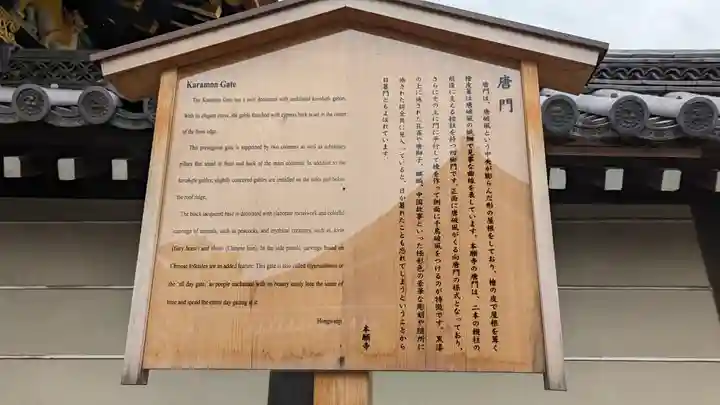 Karamon Gate
The Karamon Gate has a roof decorated with undulated karahafu gables.
With its elegant curve, the gable thatched with cypress bark stand at the center
of the front edge.
This prestigious gate is supported by two columns as well as subsidiary
pillars that stand in front and back of the main columns. In addition to the
karahafu gables, slightly contoured gables are installed on the sides just below
the roof ridge.
The black lacquered base is decorated with elaborate metalwork and colorful
carvings of animals, such as peacocks, and mythical creatures, such as, kirin
(fiery horse) and shishi (Chinese lion). In the side panels, carvings based on
Chinese folktales are an added feature. This gate is also called Higurashimon or
the 'all day gate,' as people enchanted with its beauty easily lose the sense of
time and spend the entire day gazing at it.
Hongwanji
唐門
唐門は、唐破風という中央が膨らんだ形の屋根をしており、檜の皮で屋根を葺く
檜皮葺は唐破風の細部で見事な曲線を表しています。本願寺の唐門は、二本の親柱の
前後に支える控柱を持つ四脚門です。正面に唐破風がくる向唐門の様式となっており、
さらにその上に門に平行して棟を作って側面に千鳥破風をつけるのが特徴です。黒漆
の上に施された孔雀や唐獅子、麒麟、中国故事といった極彩色の豪華な彫刻や随所に
施された錺金具に見入っていると、日が暮れたことも忘れてしまうということから
日暮門ともよばれています。
本願寺